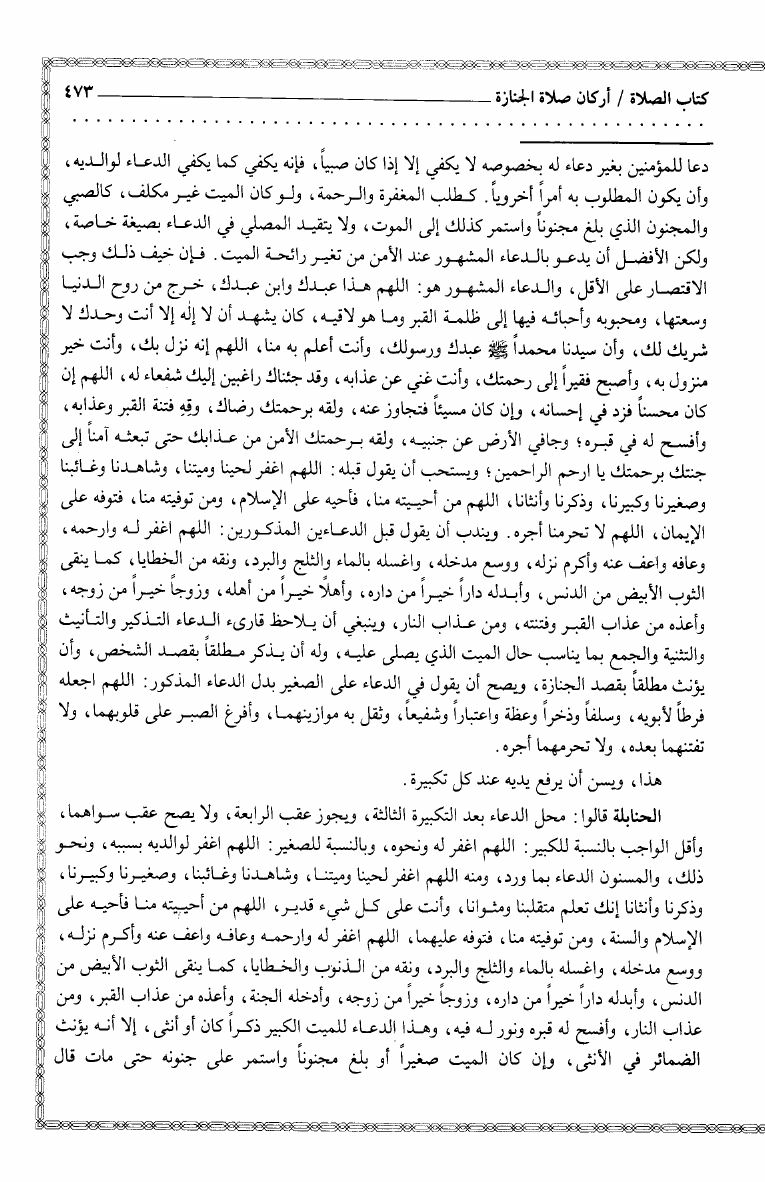 كتاب الصلاة / أركان صلاة الجنازة ٤٧٣
دعا للمؤمنين بغير دعاء له بخصوصه لا يكفي إلا إذا كان صبياً، فإنه يكفي كما يكفي الدعاء لوالديه،
وأن يكون المطلوب به أمراً أخروياً. كطلب المغفرة والرحمة، ولو كان الميت غير مكلف، كالصبي
والمجنون الذي بلغ مجنوناً واستمر كذلك إلى الموت، ولا يتقيد المصلي في الدعاء بصيغة خاصة،
ولكن الأفضل أن يدعو بالدعاء المشهور عند الأمن من تغير رائحة الميت. فإن خيف ذلك وجب
الاقتصار على الأقل، والدعاء المشهور هو: اللهم هذا عبدك وابن عبدك، خرج من روح الدنيا
وسعتها، ومحبوبه وأحبائه فيها إلى ظلمة القبر وما هو لاقيه، كان يشهد أن لا إله إلا أنت وحدك لا
شريك لك، وأن سيدنا محمداً ﷺ عبدك ورسولك، وأنت أعلم به منا، اللهم إنه نزل بك، وأنت خير
منزول به، وأصبح فقيراً إلى رحمتك، وأنت غني عن عذابه، وقد جئناك راغبين إليك شفعاء له، اللهم إن
كان محسناً فزد في إحسانه، وإن كان مسيئاً فتجاوز عنه، ولقه برحمتك رضاك، وقه فتنة القبر وعذابه،
وأفسح له في قبره؛ وجافي الأرض عن جنبيه، ولقه برحمتك الأمن من عذابك حتى تبعثه آمناً إلى
جنتك برحمتك يا ارحم الراحمين؛ ويستحب أن يقول قبله: اللهم اغفر لحينا وميتنا، وشاهدنا وغائبنا
وصغيرنا وكبيرنا، وذكرنا وأنثانا، اللهم من أحييته منا، فأحيه على الإسلام، ومن توفيته منا، فتوفه على
الإيمان، اللهم لا تحرمنا أجره. ويندب أن يقول قبل الدعاءين المذكورين: اللهم اغفر له وارحمه،
وعافه واعف عنه وأكرم نزله، ووسع مدخله، واغسله بالماء والثلج والبرد، ونقه من الخطايا، كما ينقى
الثوب الأبيض من الدنس، وأبدله داراً خيراً من داره، وأهلاً خيراً من أهله، وزوجاً خيراً من زوجه،
وأعذه من عذاب القبر وفتنته، ومن عذاب النار، وينبغي أن يلاحظ قارىء الدعاء التذكير والتأنيث
والتثنية والجمع بما يناسب حال الميت الذي يصلى عليه، وله أن يذكر مطلقاً بقصد الشخص، وأن
يؤنث مطلقاً بقصد الجنازة، ويصح أن يقول في الدعاء على الصغير بدل الدعاء المذكور: اللهم اجعله
فرطاً لأبويه، وسلفاً وذخراً وعظة واعتباراً وشفيعاً، وثقل به موازينهما، وأفرغ الصبر على قلوبهما، ولا
تفتنهما بعده، ولا تحرمهما أجره.
هذا، ويسن أن يرفع يديه عند كل تكبيرة.
الحنابلة قالوا: محل الدعاء بعد التكبيرة الثالثة، ويجوز عقب الرابعة، ولا يصح عقب سواهما،
وأقل الواجب بالنسبة للكبير: اللهم اغفر له ونحوه، وبالنسبة للصغير: اللهم اغفر لوالديه بسببه، ونحو
ذلك، والمسنون الدعاء بما ورد، ومنه اللهم اغفر لحينا وميتنا، وشاهدنا وغائبنا، وصغيرنا وكبيرنا،
وذكرنا وأنثانا إنك تعلم متقلبنا ومثوانا، وأنت على كل شيء قدير، اللهم من أحييته منا فأحيه على
الإسلام والسنة، ومن توفيته منا، فتوفه عليهما، اللهم اغفر له وارحمه وعافه واعف عنه وأكرم نزله،
ووسع مدخله، واغسله بالماء والثلج والبرد، ونقه من الذنوب والخطايا، كما ينقى الثوب الأبيض من
الدنس، وأبدله داراً خيراً من داره، وزوجاً خيراً من زوجه، وأدخله الجنة، وأعذه من عذاب القبر، ومن
عذاب النار، وأفسح له قبره ونور له فيه، وهذا الدعاء للميت الكبير ذكراً كان أو أنثى، إلا أنه يؤنث
الضمائر في الأنثى، وإن كان الميت صغيراً أو بلغ مجنوناً واستمر على جنونه حتى مات قال